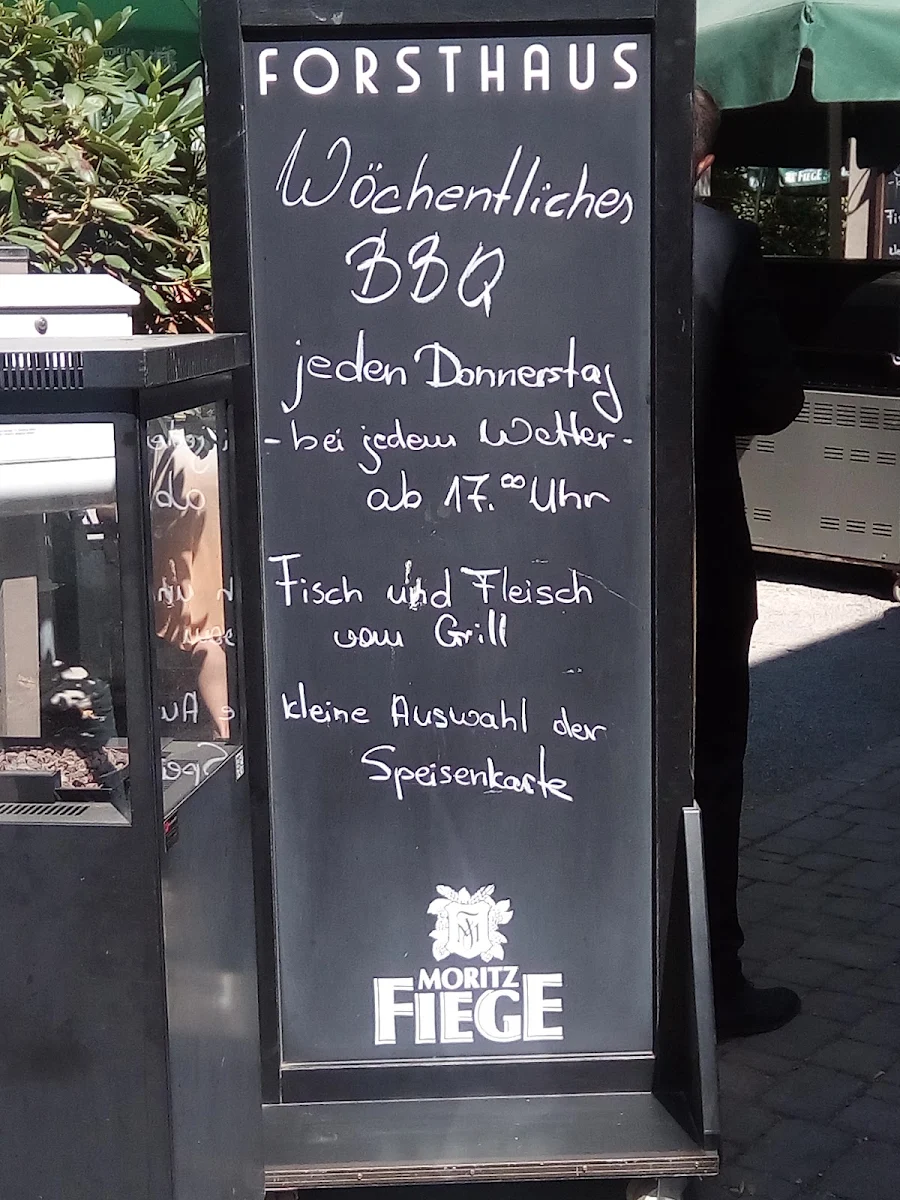 FORSTHAUS
Wöchentliches
BBQ
jeden Donnerstag
- bei jedem Wetter -
ab 17.00 Uhr
Fisch und Fleisch
vom Grill
kleine Auswahl der
Speisenkarte
MORITZ
FIEGE
FIEGE